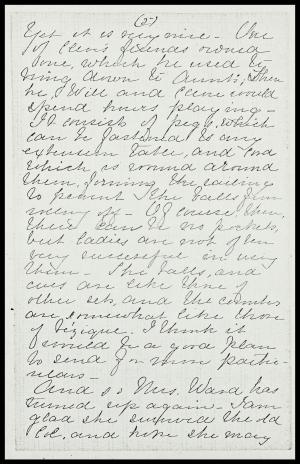 (5)
Yet it is very nice - One
of Clem's friends owned
one, which he used to
bring down to Aunt's, then
he, Will and Clem would
spend hours playing -
It consists of pegs, which
can be fastened to any
extension table, and cord
which is wound around
them, forming the railing
to prevent the balls from
rolling off - Of course, then,
there can be no pockets,
but ladies are not often
very successful in using
them - The balls, and
cues are like those of
other sets, and the counters
are somewhat like those
of bézique. I think it
would be a good plan
to send for more partic-
ulars -
And so Mrs. Ward has
turned up again - I am
glad she survived the
and hope she may